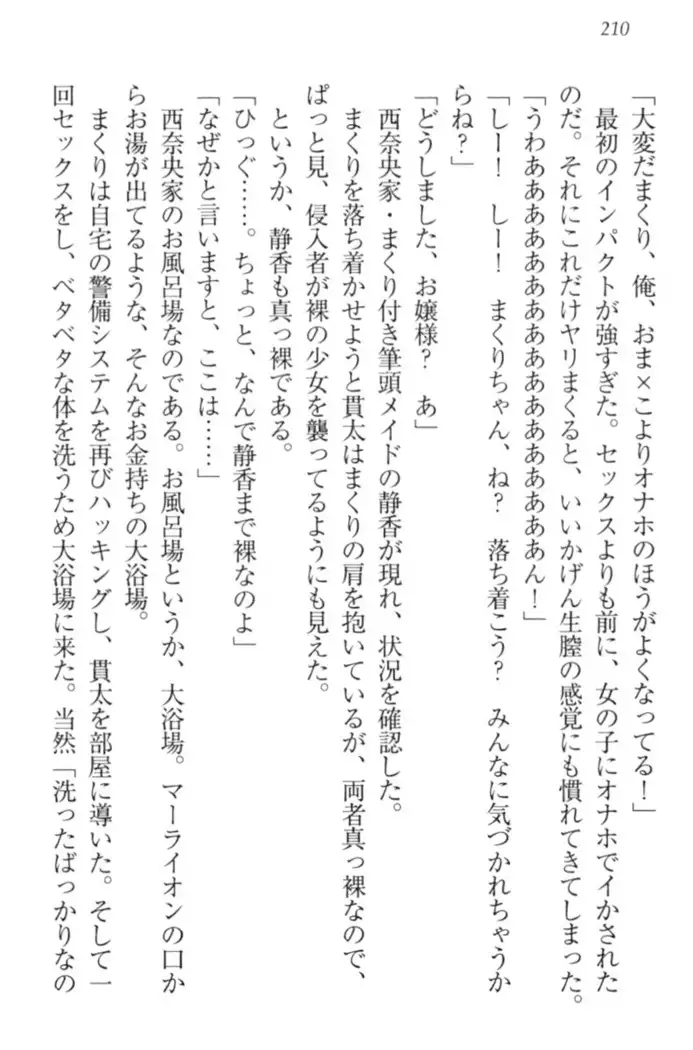 210
「大変だまくり、俺、おま×こよりオナホのほうがよくなってる！」
最初のインパクトが強すぎた。セックスよりも前に、女の子にオナホでイかされた
のだ。それにこれだけヤリまくると、いいかげん生膣の感覚にも慣れてきてしまった。
「うわあああああああああああああああああん！」
「しー！　しー！　まくりちゃん、ね？　落ち着こう？　みんなに気づかれちゃうか
らね？」
「どうしました、お嬢様？　あ」
西奈央家・まくり付き筆頭メイドの静香が現れ、状況を確認した。
まくりを落ち着かせようと貫太はまくりの肩を抱いているが、両者真っ裸なので、
ぱっと見、侵入者が裸の少女を襲ってるようにも見えた。
というか、静香も真っ裸である。
「ひっぐ……。ちょっと、なんで静香まで裸なのよ」
「なぜかと言いますと、ここは……」
西奈央家のお風呂場なのである。お風呂場というか、大浴場。マーライオンの口か
らお湯が出てるような、そんなお金持ちの大浴場。
まくりは自宅の警備システムを再びハッキングし、貫太を部屋に導いた。そして一
回セックスをし、ベタベタな体を洗うため大浴場に来た。当然「洗ったばっかりなの